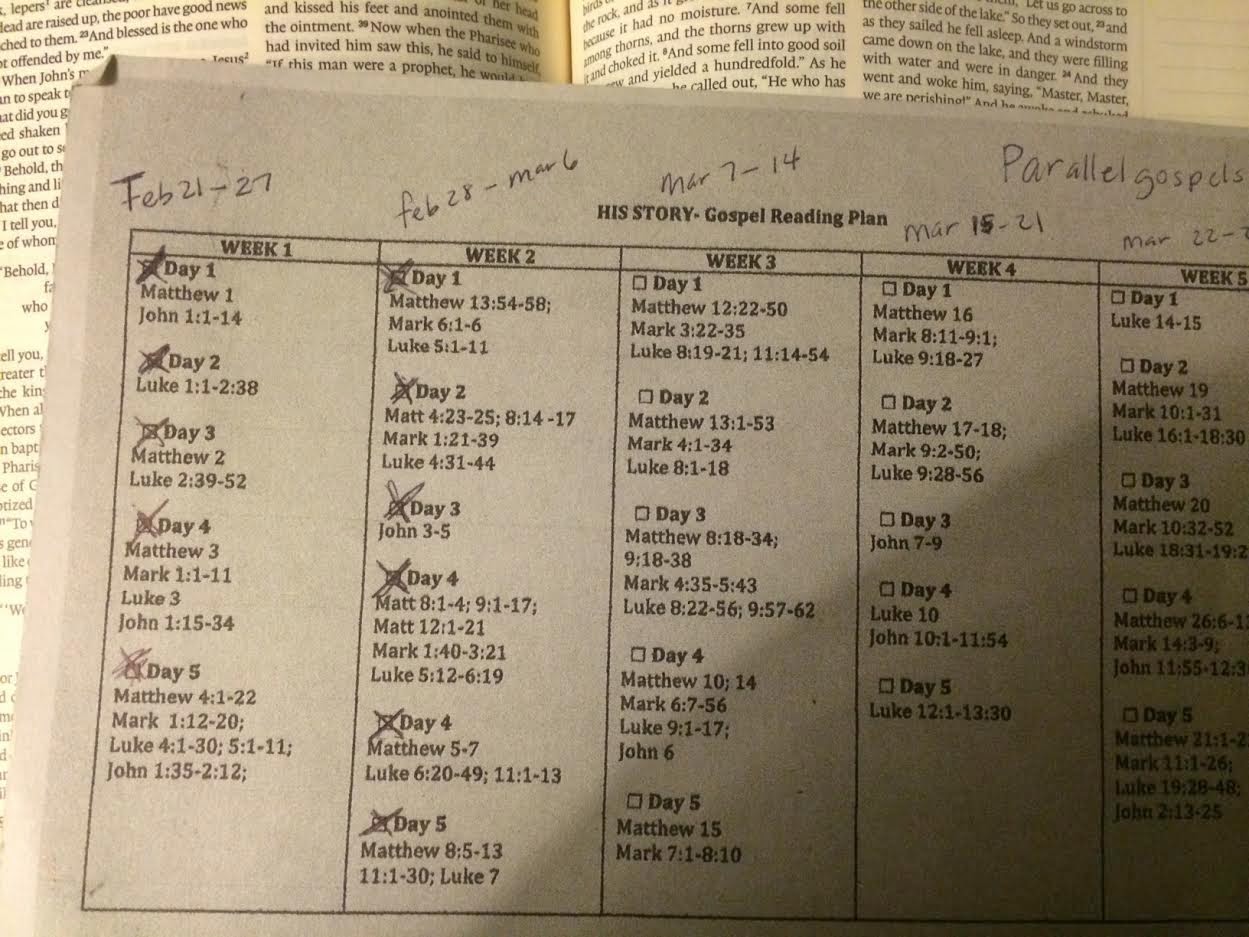 lepers¹ are cleansed,
dead are raised up, the poor have good news
ched to them. ²³And blessed is the one who
offended by me."
When John's
an to speak
hat did you
shaken
go out to
Behold, th
hing and
hat then d
I tell you,
of whom
"Behold,
who
ell you,
reater
the kin
When al
ectors
bapt
Pharis
of
like
Jesus²
her head
and kissed his feet and anointed them with
the ointment. ³⁹Now when the Pharisee who
had invited him saw this, he said to himself,
"If this man were a prophet, he would
the rock, and as it
because it had no moisture. ⁷And some fell
among thorns, and the thorns grew up with
it and choked it. ⁸And some fell into good soil
and yielded a hundredfold." As he
he called out, "He who has
"Let us go across to
the other side of the lake." So they set out, ²³and
as they sailed he fell asleep. And a windstorm
came down on the lake, and they were filling
with water and were in danger. ²⁴And they
went and woke him, saying, "Master, Master,
we are perishing!" And he awoke and rebuked
Feb 21-27
feb 28 - mar 6
mar 7-14
Parallel gospels
HIS STORY- Gospel Reading Plan
mar 15-21
mar 22-2
WEEK 1
☒ Day 1
Matthew 1
John 1:1-14
☒ Day 2
Luke 1:1-2:38
☒ Day 3
Matthew 2
Luke 2:39-52
☒ Day 4
Matthew 3
Mark 1:1-11
Luke 3
John 1:15-34
☒ Day 5
Matthew 4:1-22
Mark 1:12-20;
Luke 4:1-30; 5:1-11;
John 1:35-2:12;
WEEK 2
☒ Day 1
Matthew 13:54-58;
Mark 6:1-6
Luke 5:1-11
☒ Day 2
Matt 4:23-25; 8:14 -17
Mark 1:21-39
Luke 4:31-44
☒ Day 3
John 3-5
☒ Day 4
Matt 8:1-4; 9:1-17;
Matt 12:1-21
Mark 1:40-3:21
Luke 5:12-6:19
☒ Day 4
Matthew 5-7
Luke 6:20-49; 11:1-13
☒ Day 5
Matthew 8:5-13
11:1-30; Luke 7
WEEK 3
☐ Day 1
Matthew 12:22-50
Mark 3:22-35
Luke 8:19-21; 11:14-54
☐ Day 2
Matthew 13:1-53
Mark 4:1-34
Luke 8:1-18
☐ Day 3
Matthew 8:18-34;
9:18-38
Mark 4:35-5:43
Luke 8:22-56; 9:57-62
☐ Day 4
Matthew 10; 14
Mark 6:7-56
Luke 9:1-17;
John 6
☐ Day 5
Matthew 15
Mark 7:1-8:10
WEEK 4
☐ Day 1
Matthew 16
Mark 8:11-9:1;
Luke 9:18-27
☐ Day 2
Matthew 17-18;
Mark 9:2-50;
Luke 9:28-56
☐ Day 3
John 7-9
☐ Day 4
Luke 10
John 10:1-11:54
☐ Day 5
Luke 12:1-13:30
WEEK 5
☐ Day 1
Luke 14-15
☐ Day 2
Matthew 19
Mark 10:1-31
Luke 16:1-18:30
☐ Day 3
Matthew 20
Mark 10:32-52
Luke 18:31-19:2
☐ Day 4
Matthew 26:6-1
Mark 14:3-9;
John 11:55-12:3
☐ Day 5
Matthew 21:1-2
Mark 11:1-26;
Luke 19:28-48;
John 2:13-25